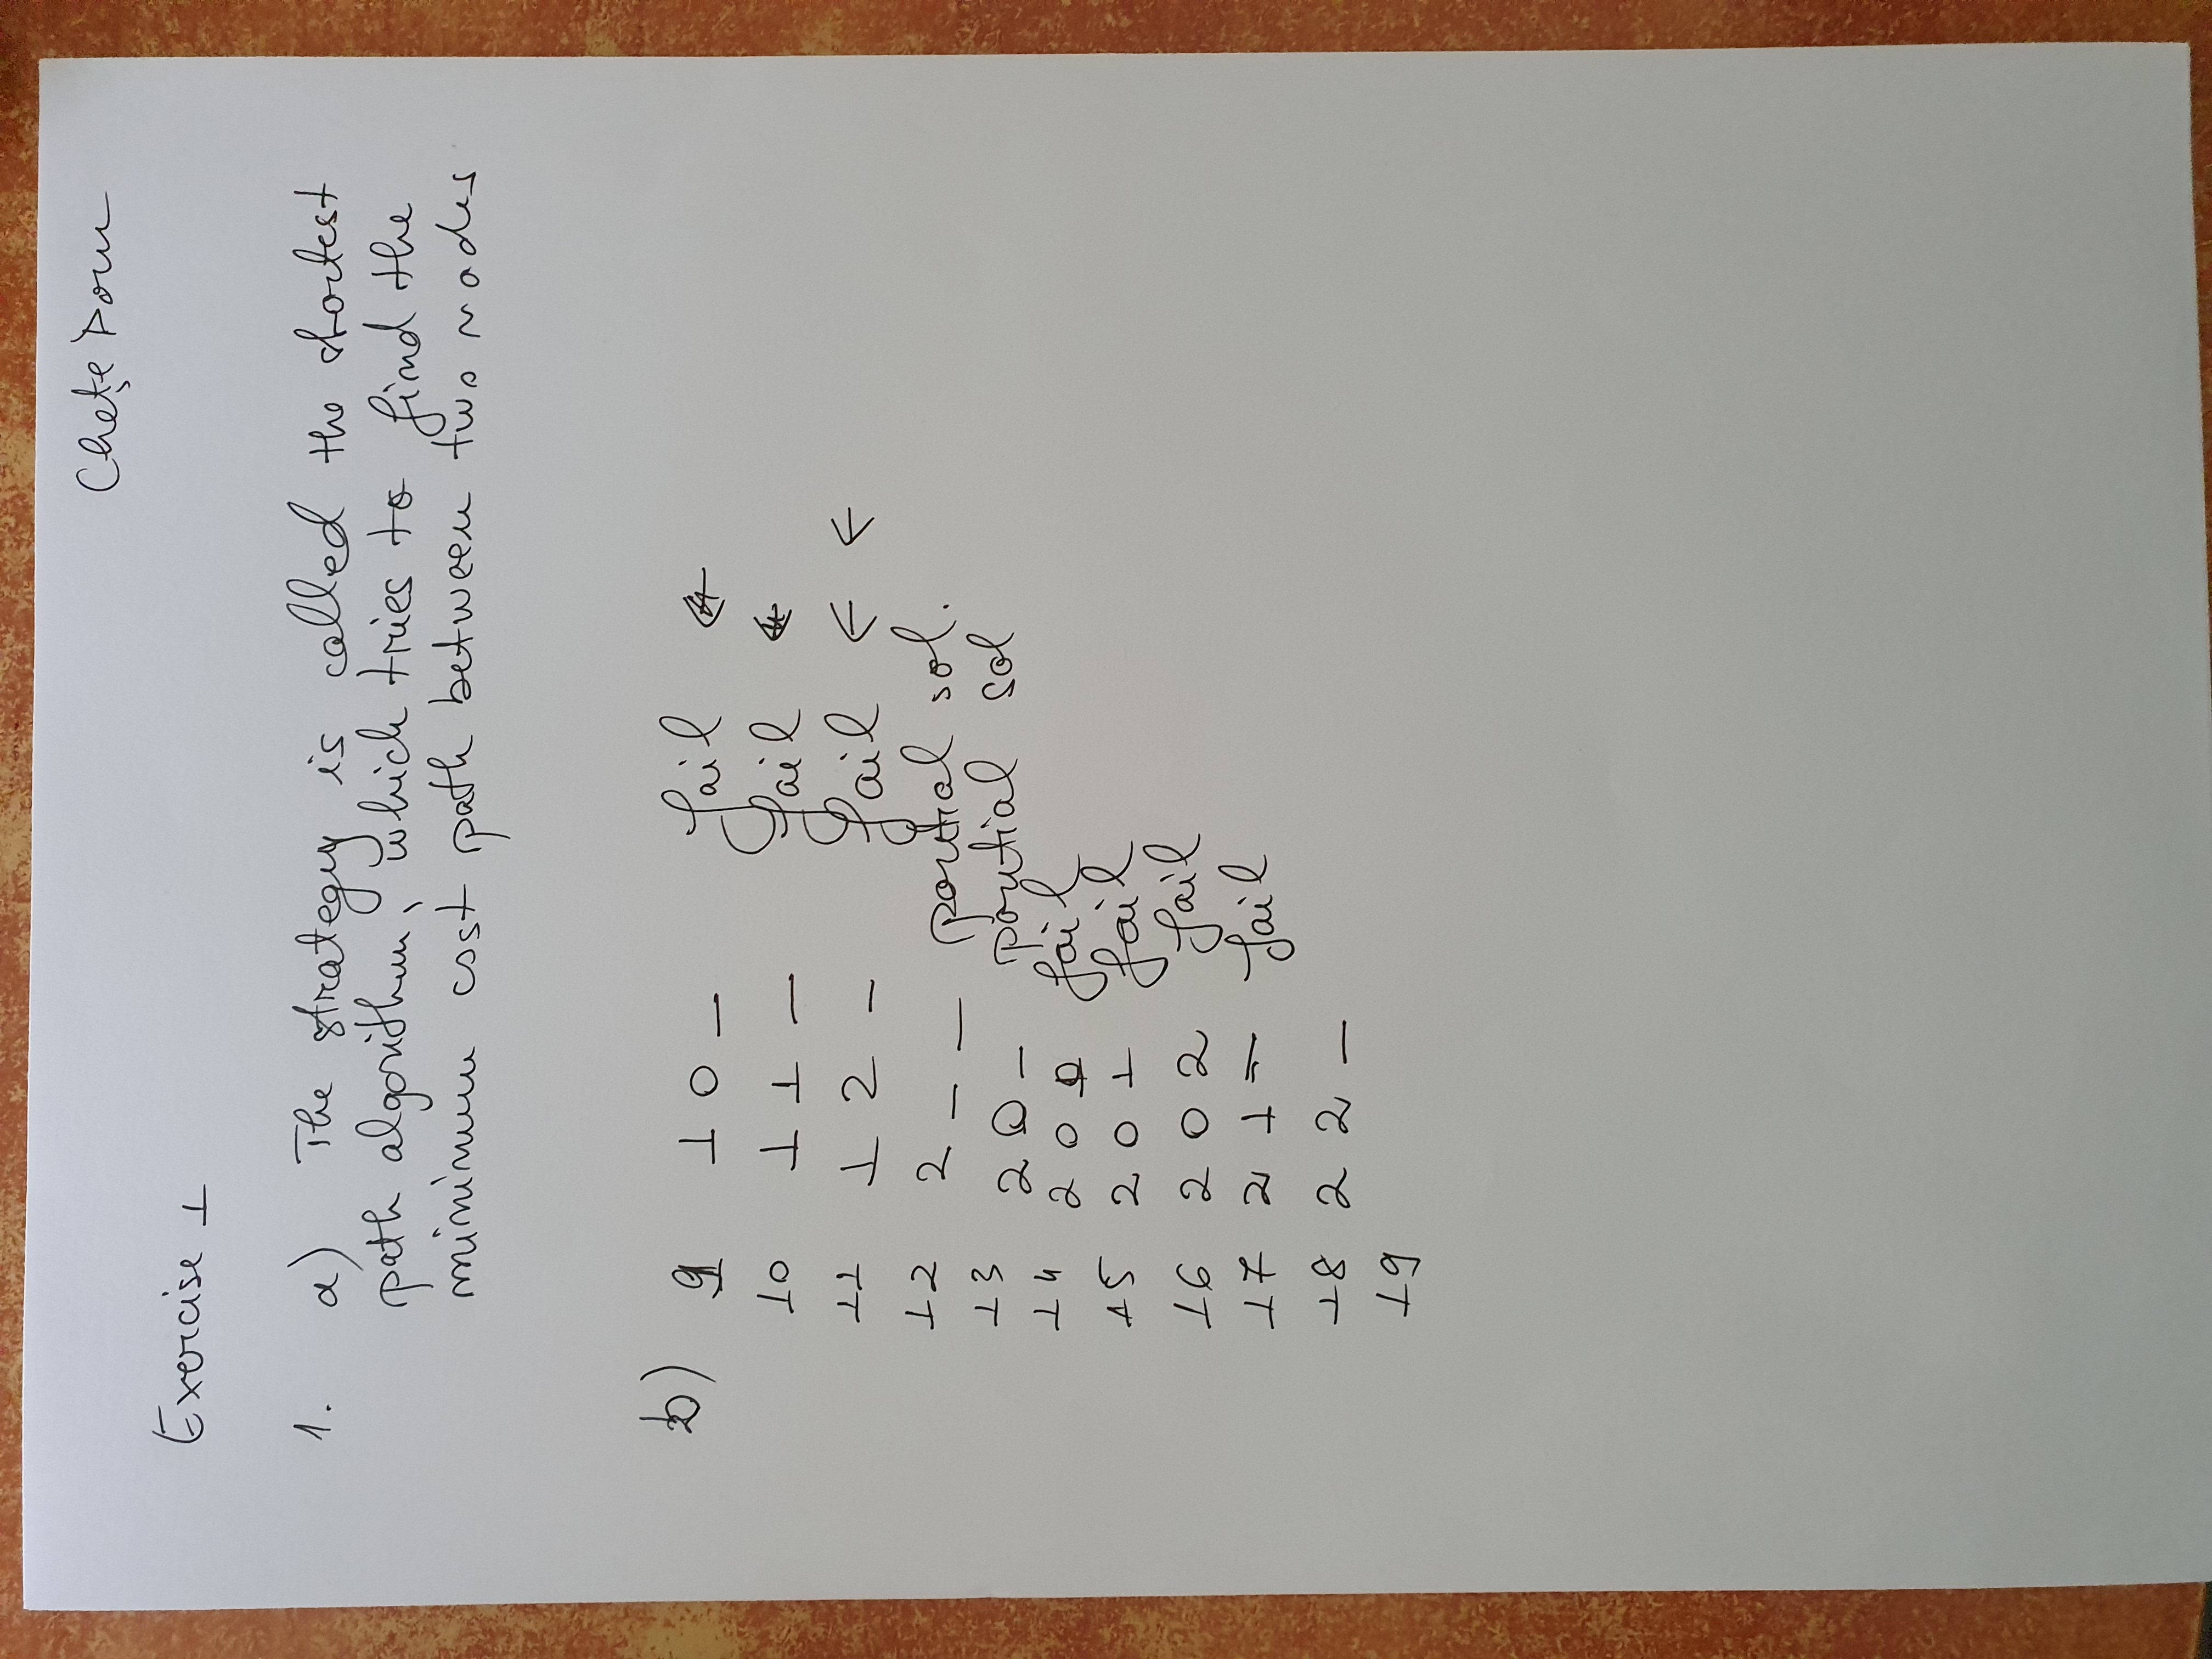 Exercise 1
1. a) The strategy is called the shortest
path algorithm, which tries to find the
minimum cost path between two nodes
b) 9 1 0 _ fail ←
10 1 1 _ fail ←
11 1 2 _ fail ← ←
12 2 _ _ partial sol.
13 2 0 _ partial sol
14 2 0 0 fail
15 2 0 1 fail
16 2 0 2 fail
17 2 1 _ fail
18 2 2 _
19